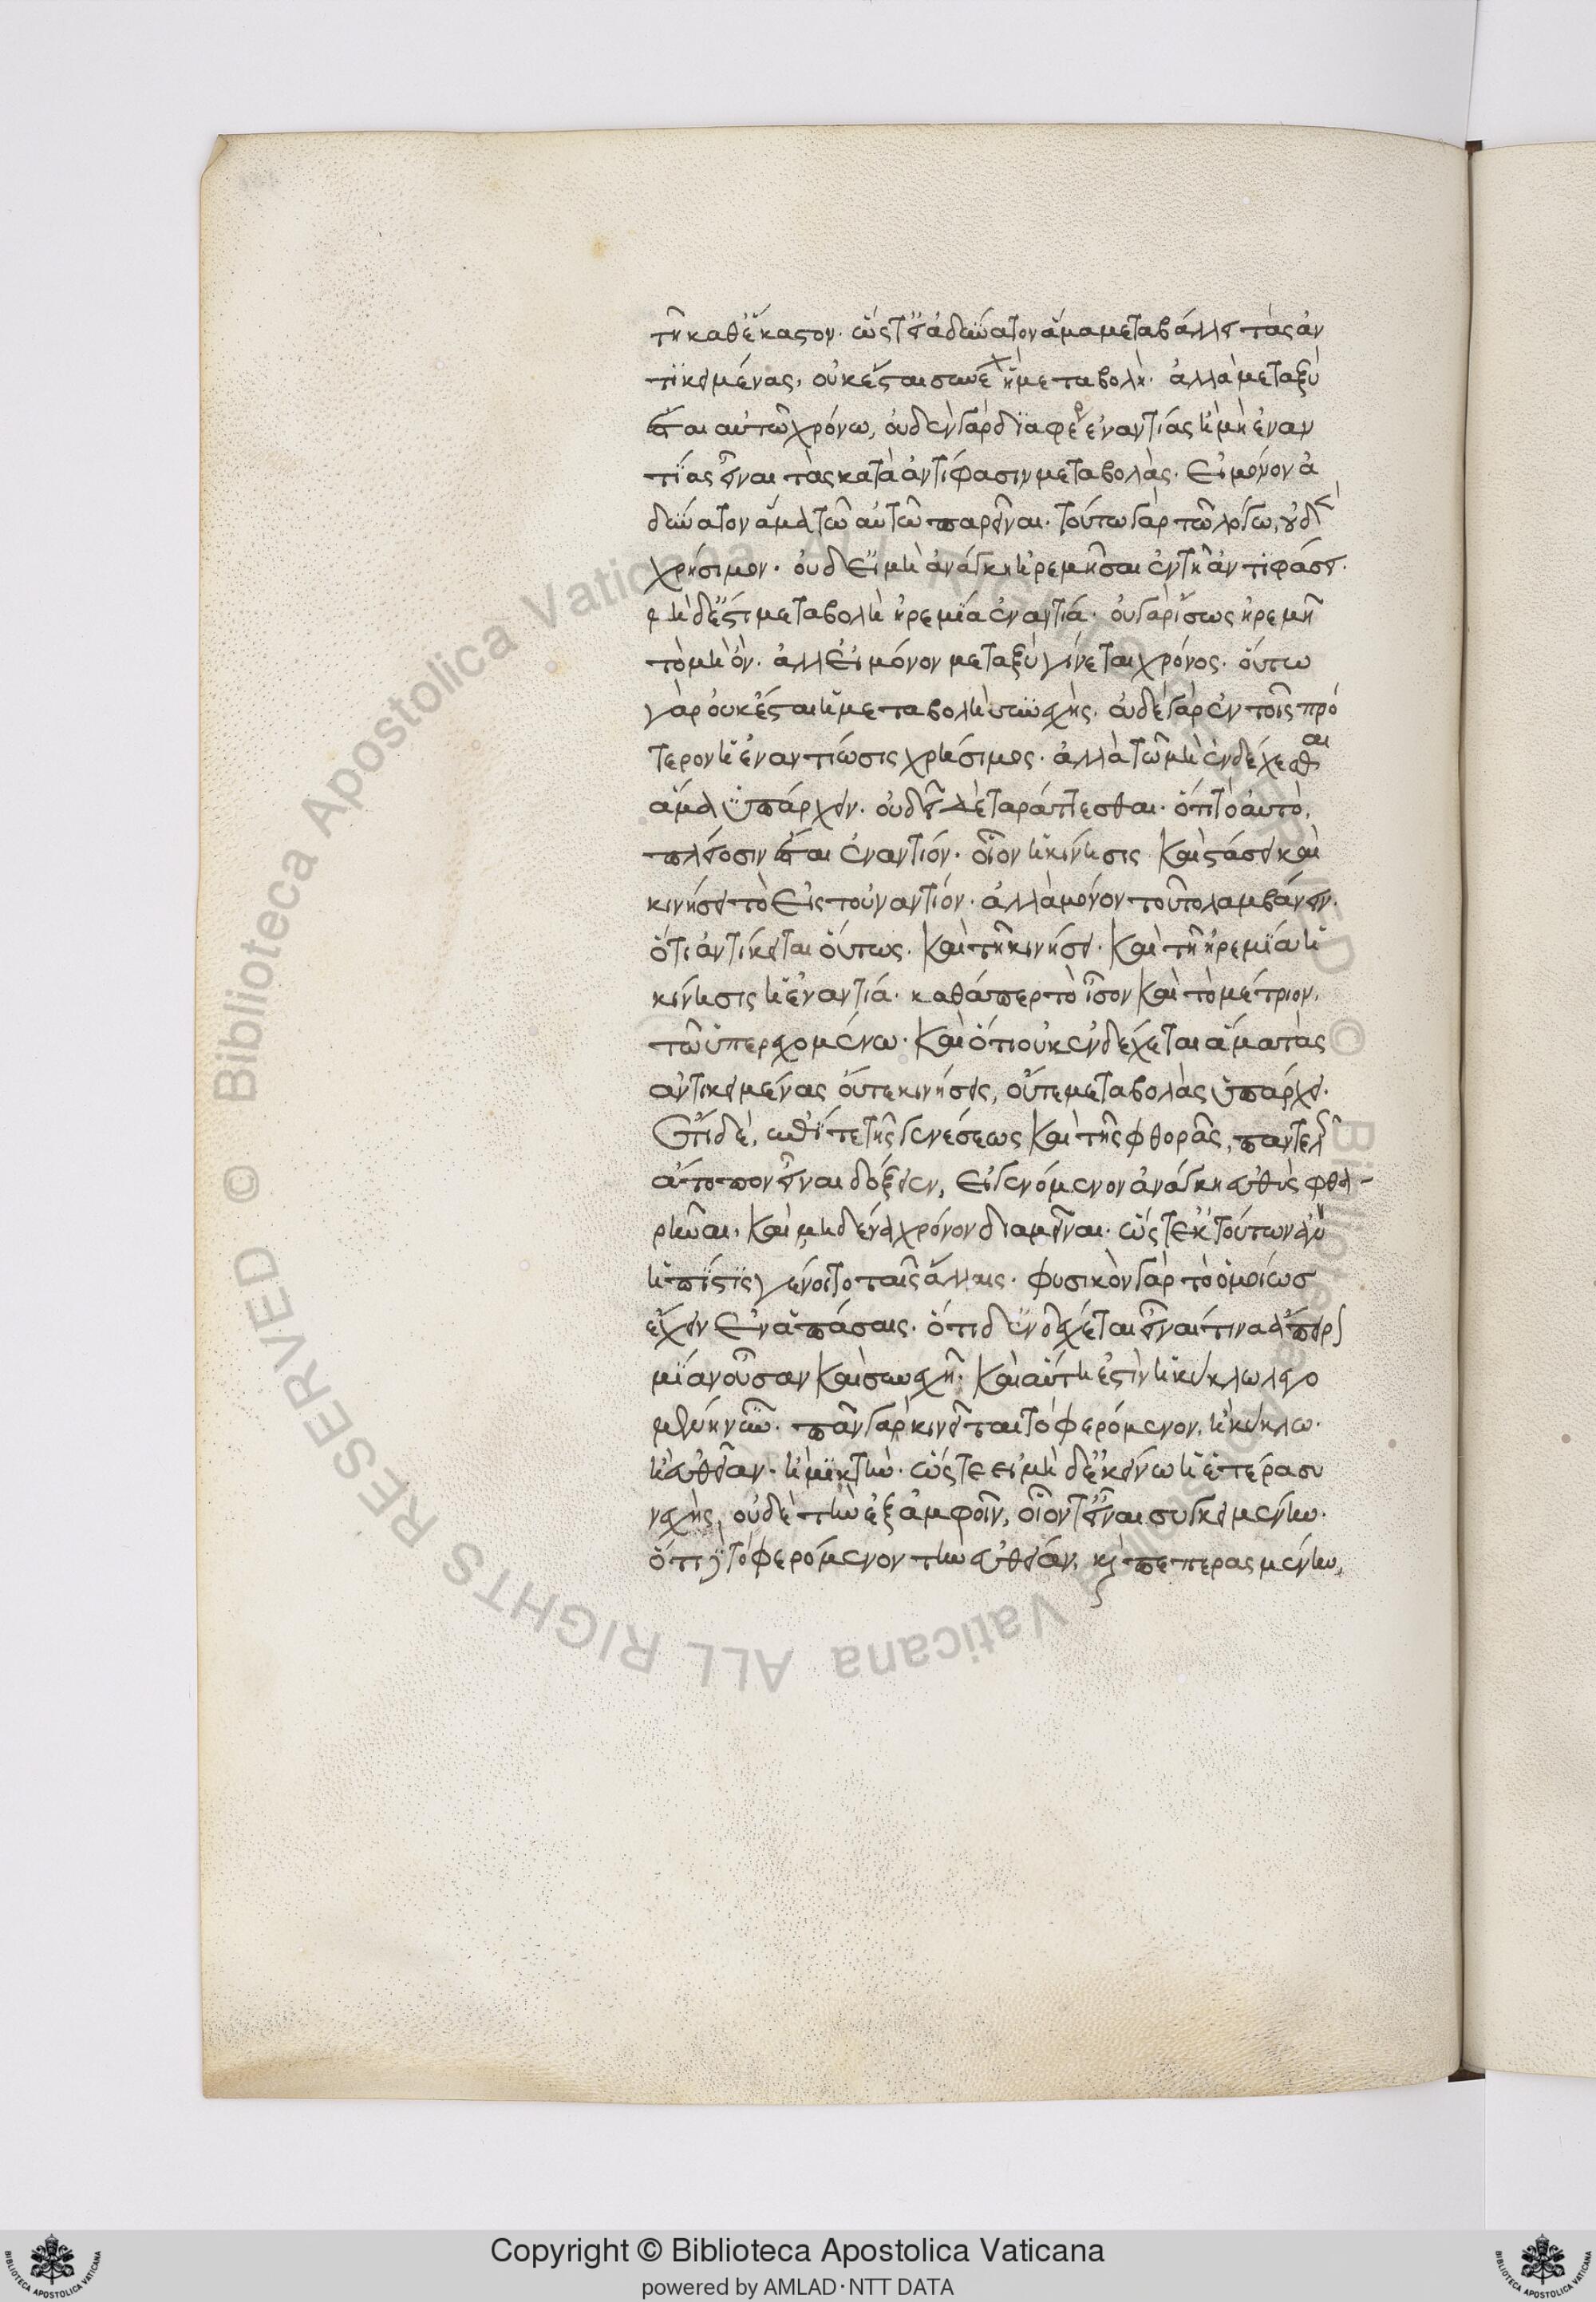 τῆ καθ ἕκαστον. ὥςτ εἰ ἀδύνατον ἅμα μεταβάλλει τὰς ἀν
τϊκειμένας, οὐκ ἔσται συνεχὴς ἡ μεταβολὴ. ἀλλὰ μεταξὺ
ἔσται αὐτῶ χρόνω, οὐδὲν γὰρ διαφέρει ἐναντίας ἢ μὴ ἐναν
τίας εἶναι τὰς κατὰ ἀντίφασιν μεταβολὰς. εἰ μόνον ἀ
δύνατον ἅμα τῶ αὐτῶ παρεῖναι. τούτω γὰρ τῶ λόγω, οὐδὲν
χρήσιμον. οὐδ εἰ μὴ ἀνάγκη ἠρεμῆσαι ἐν τῆ ἀντϊφάσει.
μὴ δ ἔστι μεταβολὴ ἠρεμία ἐναντία. οὐ γὰρ ἴσως ἠρεμῆ
τὸ μὴ ὄν. ἀλλ εἰ μόνον μεταξὺ γίνεται χρόνος. οὕτω
γὰρ οὐκ ἔσται ἡ μεταβολὴ συνεχὴς. οὐδὲ γὰρ ἐν τοῖς πρό
τερον ἡ ἐναντίωσις χρήσιμος. ἀλλὰ τῶ μὴ ἐνδέχεσθαι
ἅμα ὑπάρχειν. οὐ δεῖ δὲ ταράττεσθαι. ὅτι τὸ αὐτὸ,
πλείοσιν ἔσται ἐναντίον. οἷον ἡ κίνησις καὶ στάσει καὶ
κινήσει τὸ εἰς τοὐναντίον. ἀλλὰ μόνον τοῦτο λαμβάνειν.
ὅτι ἀντίκειται οὕτως. καὶ τῆ κινήσει. καὶ τῆ ἠρεμία ἡ
κίνησις ἡ ἐναντία. καθάπερ τὸ ἴσον καὶ τὸ μέτριον,
τῶ ὑπερεχομένω. καὶ ὅτι οὐκ ἐνδέχεται ἅμα τὰς
ἀντικειμένας οὔτε κινήσεις, οὔτε μεταβολὰς ὑπάρχει.
Ἔτι δὲ, ἐπί τε τῆς γενέσεως καὶ τῆς φθορᾶς, παντελῶς
ἄτοπον εἶναι δόξειεν, εἰ γενόμενον ἀνάγκη εὐθὺς φθα-
ρῆναι, καὶ μηδένα χρόνον διαμεῖναι. ὥς τ ἐκ τούτων ἂν
ἡ πίστις γένοιτο ταῖς ἄλλαις. φυσικὸν γὰρ τὸ ὁμοίως
ἔχειν ἐν ἁπάσαις. ὅτι δ ἐνδέχεται εἶναί τινα ἄπειρον
μίαν οὖσαν καὶ συνεχῆ. καὶ αὕτη ἐστὶν ἡ κύκλω λεγο
μεν νῦν. πᾶν γὰρ κινεῖται τὸ φερόμενον, ἢ κύκλω.
ἢ εὐθεῖαν. ἢ μϊκτὴν. ὥςτε εἰ μὴ δ ἐκείνω ἡ ἑτέρα συ
νεχὴς, οὐδὲ τὴν ἐξ ἀμφοῖν, οἷόν τ εἶναι συγκειμένην.
ὅτι δὲ τὸ φερόμενον τὴν εὐθεῖαν, καὶ πεπερασμένην,